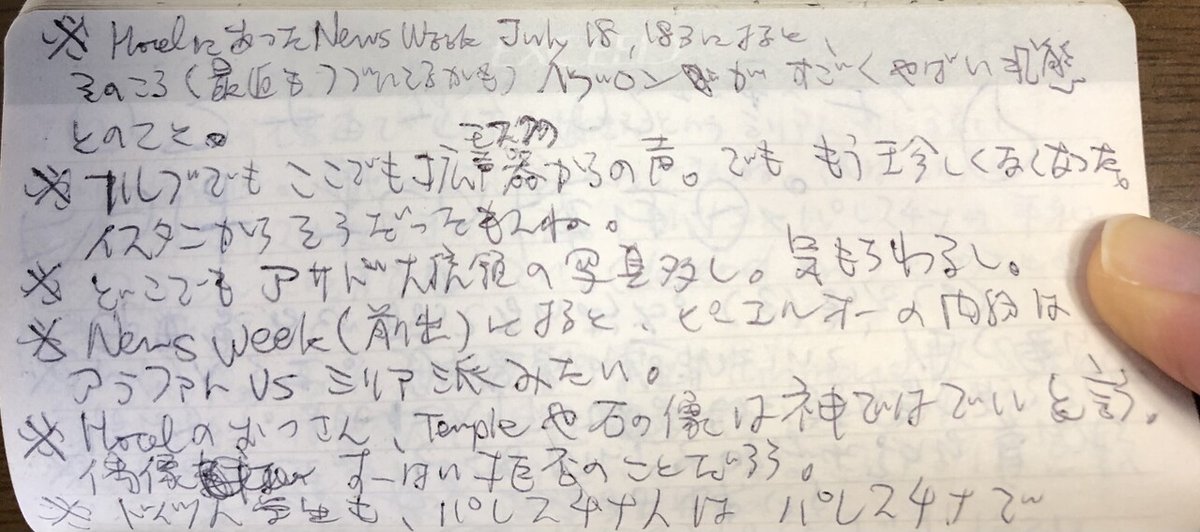 ※ HotelにあったNews Week July 18, '83によると、
そのころ(最近もつづいてるかも)レバノンがすごくやばい状態
とのこと。
モスクの
※ アレッポでもここでも拡声器からの声。でももう珍しくなくなった。
イスタンからそうだったもんね。
※ どこでもアサド大統領の写真多し。気もちわるし。
※ News Week(前出)によると、ピーエルオーの内紛は
アラファト vs シリア派みたい。
※ Hotelのおっさん、Templeや石の像は神ではないと言う。
偶像すーはい拒否のことだろう。
※ ドイツ人学生も、パレスチナ人はパレスチナで